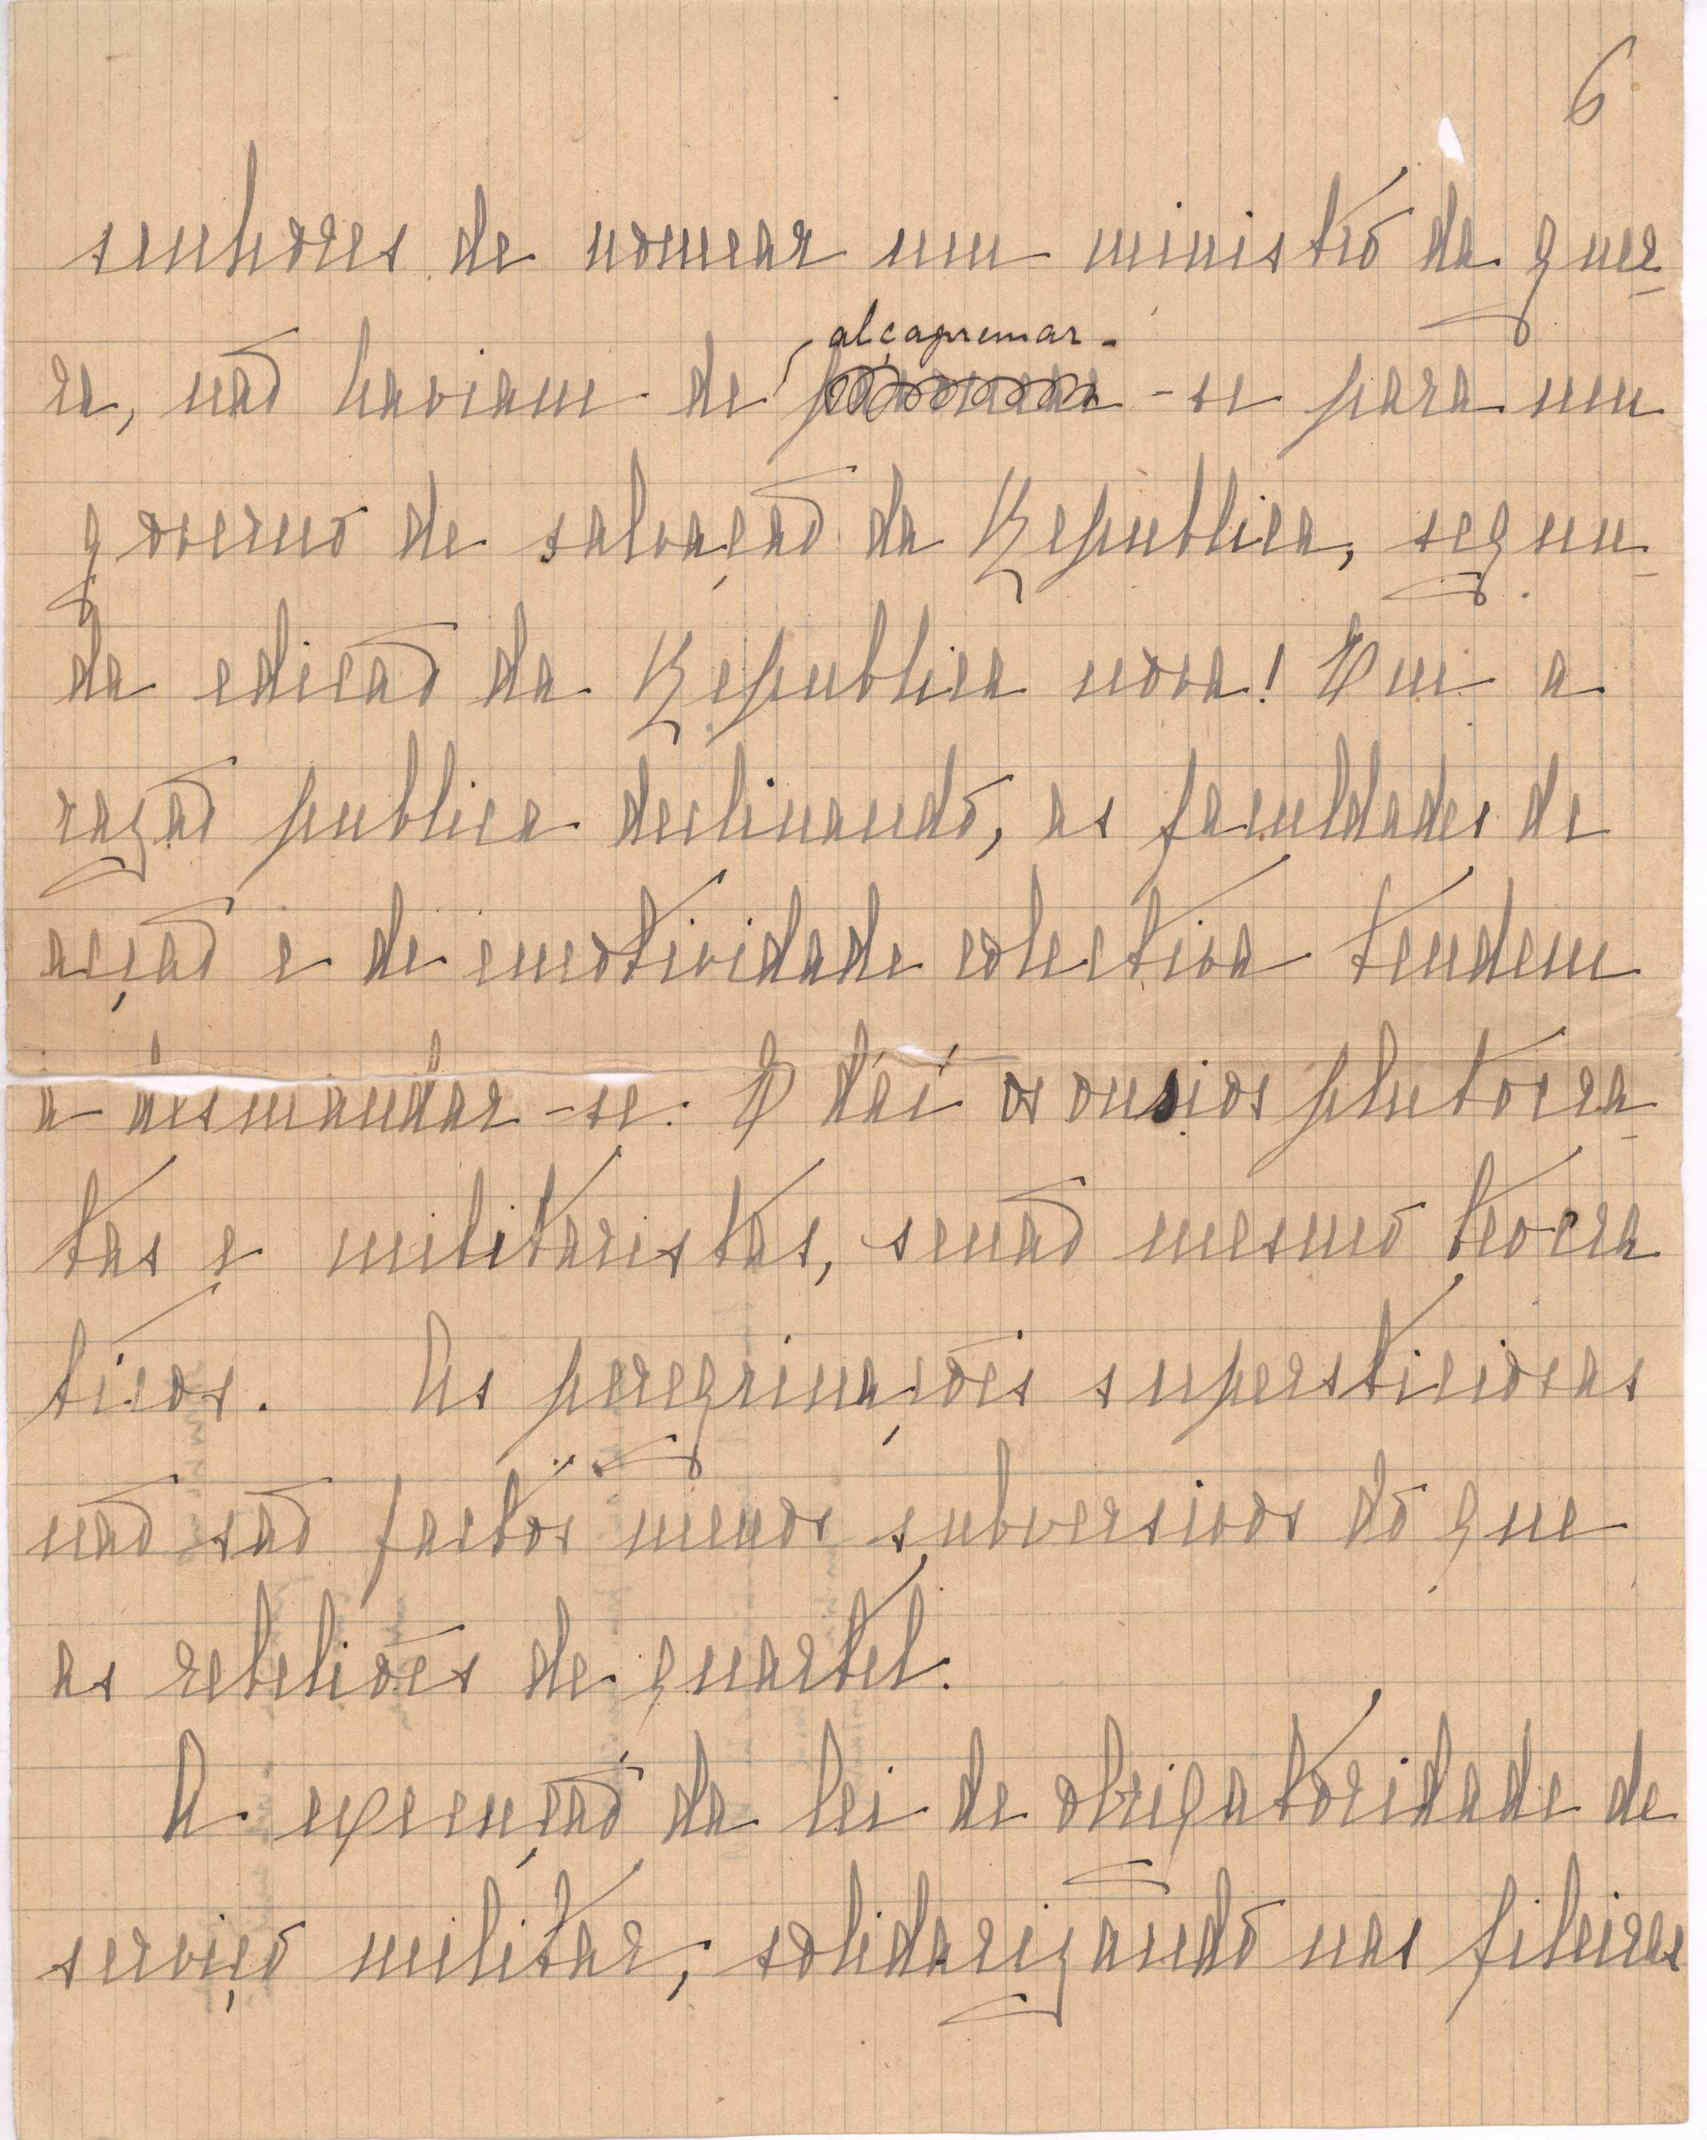 6
senhores de nomear um ministro da guer-
ra, não haviam de alcapremar-se para um
governo de salvação da Republica, segun-
da edicão da Republica nova! Em a
razão publica declinando, as faculdades de
acção e de emotividade colectiva tendem
a desmandar-se. E daí os ousios plutocra-
tas e militaristas, senão mesmo teocra
ticos. As peregrinações supersticiosas
não são factos menos subversivos do que
as rebeliões de quartel.
A execução da lei de obrigatoridade de
serviço militar, solidarizando nas fileiras